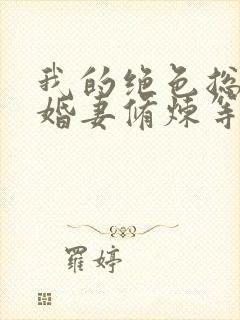 我的绝色总
婚妻修炼等
羅婷